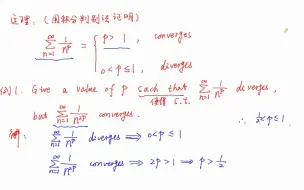 定理：(用积分判别法证明)
∑_{n=1}^{∞} 1/n^p = { p > 1, converges
0 < p ≤ 1, diverges
例1. Give a value of p such that ∑_{n=1}^{∞} 1/n^p diverges,
使得 s.t.
but ∑_{n=1}^{∞} 1/n^{2p} converges.
∴ 1/2 < p ≤ 1
解: ∑_{n=1}^{∞} 1/n^p diverges ⟹ 0 < p ≤ 1
∑_{n=1}^{∞} 1/n^{2p} converges ⟹ 2p > 1 ⟹ p > 1/2